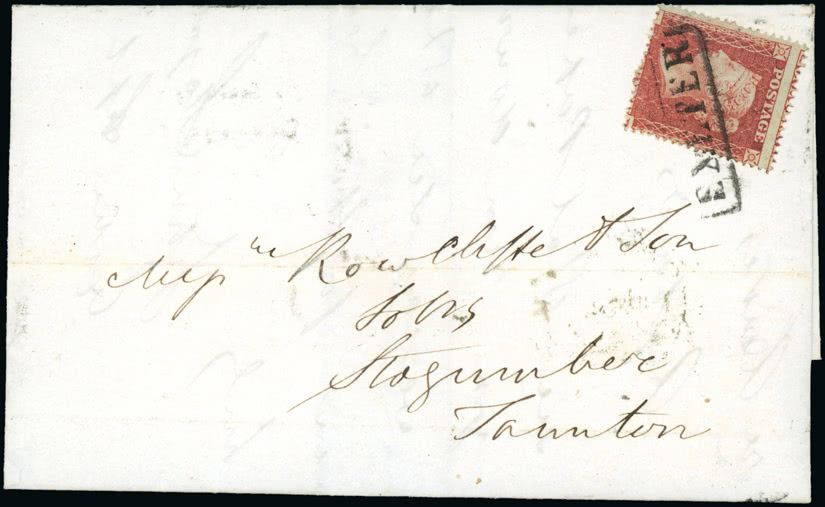 POSTAGE
EXETER
Messrs Rowcliffe & Son
Solrs
Stogumber
Taunton